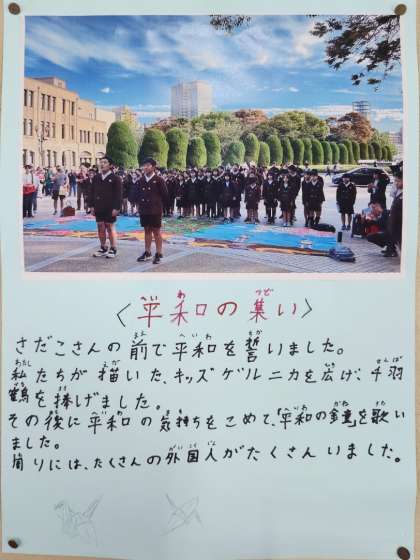 〈平和の集い〉
さだこさんの前で平和を誓いました。
私たちが描いた、キッズゲルニカを広げ、千羽
鶴を捧げました。
その後に平和の気持ちをこめて、「平和の鐘」を歌い
ました。
周りには、たくさんの外国人がたくさんいました。